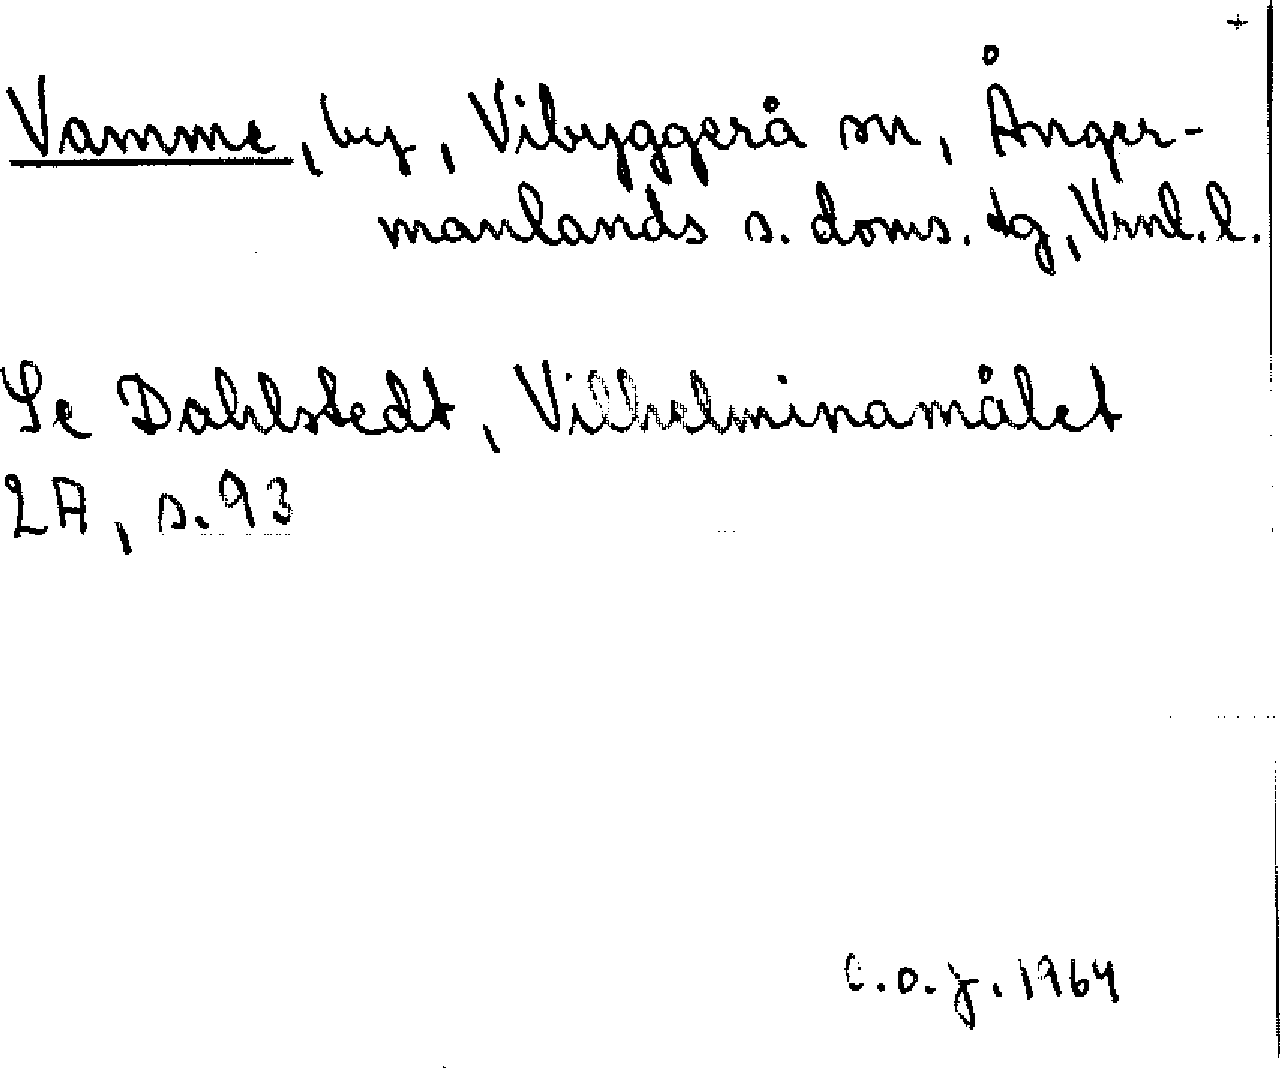 Vamme, by, Vibyggerå sn, Ånger-
manlands s. doms. tg, Vrnl. l.
Se Dahlstedt, Vilhelminamålet
2A, s. 93
C.O.J. 1964